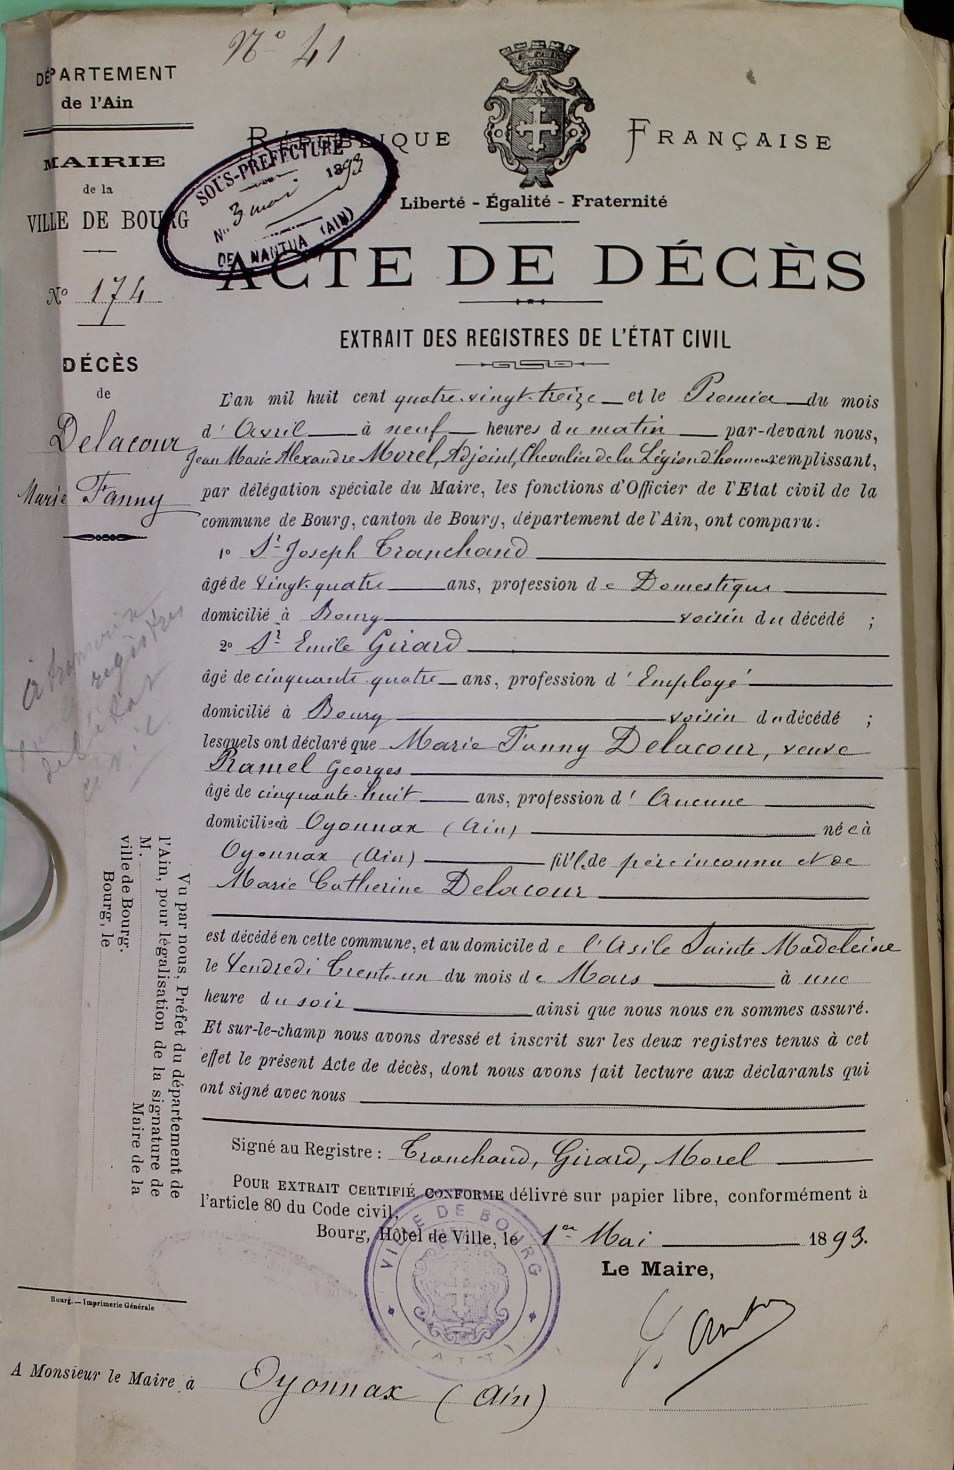 N° 41
DÉPARTEMENT
de l'Ain
MAIRIE
de la
VILLE DE BOURG
N° 174
DÉCÈS
de
Delacour
Marie Fanny
à transcrire
registres
de l'état
civil
RÉPUBLIQUE FRANÇAISE
SOUS-PRÉFECTURE
N° 3 mai 1893
DE NANTUA (AIN)
Liberté - Égalité - Fraternité
ACTE DE DÉCÈS
EXTRAIT DES REGISTRES DE L'ÉTAT CIVIL
L'an mil huit cent quatre-vingt-treize et le Premier du mois
d'Avril à neuf heures du matin par-devant nous,
Jean Marie Alexandre Morel, Adjoint, Chevalier de la Légion d'honneur remplissant,
par délégation spéciale du Maire, les fonctions d'Officier de l'Etat civil de la
commune de Bourg, canton de Bourg, département de l'Ain, ont comparu:
1° Sr Joseph Tranchand
âgé de vingt-quatre ans, profession de Domestique
domicilié à Bourg voisin du décédé ;
2° Sr Emile Girard
âgé de cinquante-quatre ans, profession d'Employé
domicilié à Bourg voisin du décédé ;
lesquels ont déclaré que Marie Fanny Delacour, veuve
Ramel Georges
âgé de cinquante-huit ans, profession d'Aucune
domiciliée à Oyonnax (Ain) née à
Oyonnax (Ain) fille de père inconnu et de
Marie Catherine Delacour
est décédé en cette commune, et au domicile de l'Asile Sainte Madeleine
le Vendredi trente-un du mois de Mars à une
heure du soir ainsi que nous nous en sommes assuré.
Et sur-le-champ nous avons dressé et inscrit sur les deux registres tenus à cet
effet le présent Acte de décès, dont nous avons fait lecture aux déclarants qui
ont signé avec nous
Signé au Registre : Tranchand, Girard, Morel
POUR EXTRAIT CERTIFIÉ CONFORME délivré sur papier libre, conformément à
l'article 80 du Code civil,
Bourg, Hôtel de Ville, le 1er Mai 1893.
Le Maire,
VILLE DE BOURG
(AIN)
Vu par nous, Préfet du département de
l'Ain, pour légalisation de la signature de
M. Maire de la
ville de Bourg.
Bourg, le
Bourg. — Imprimerie Générale
A Monsieur le Maire à Oyonnax (Ain)